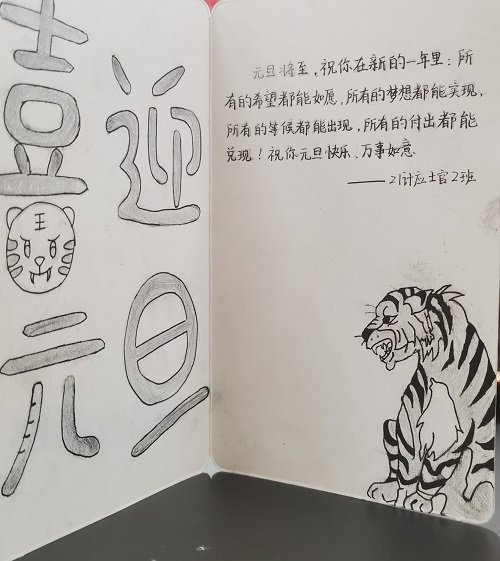 喜迎
王
元旦
元旦将至,祝你在新的一年里:所
有的希望都能如愿,所有的梦想都能实现,
所有的等候都能出现,所有的付出都能
兑现!祝你元旦快乐、万事如意.
——21计应士官2班